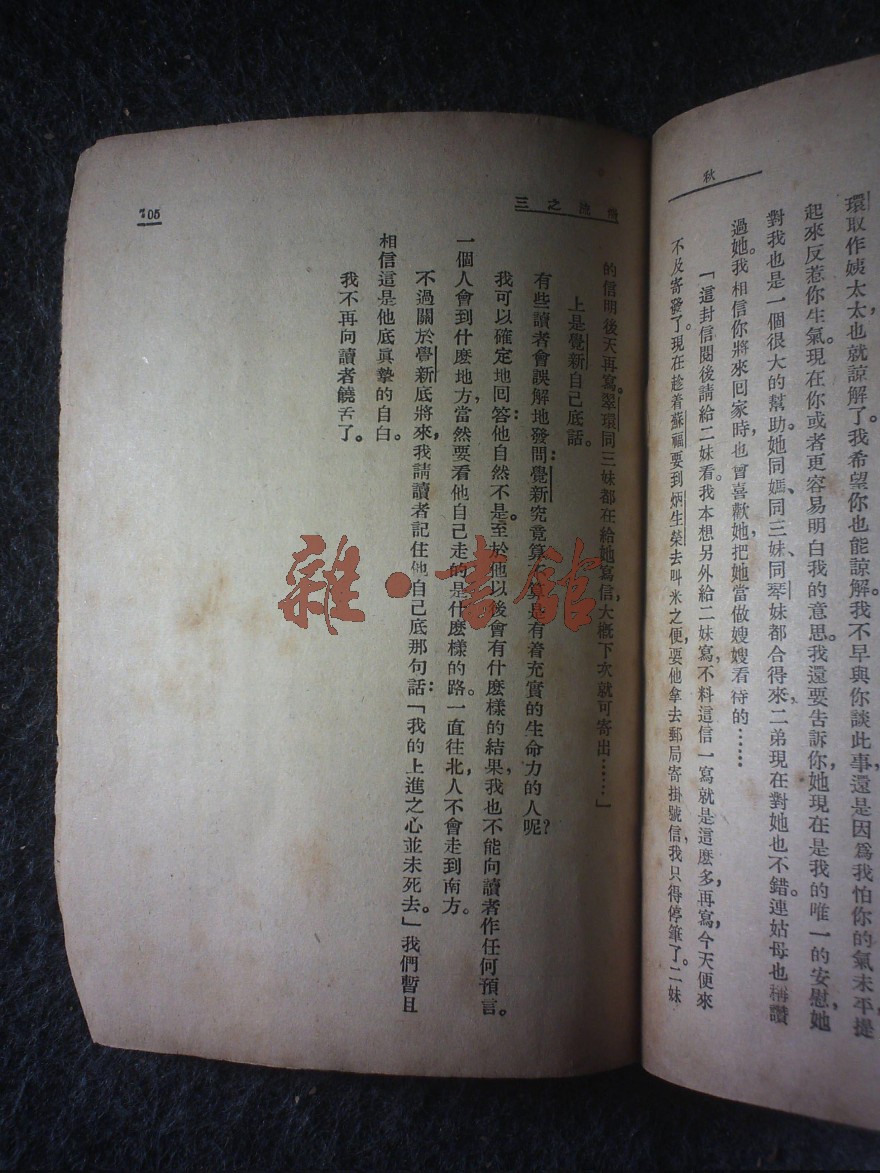 秋
環取作姨太太也就諒解了。我希望你也能諒解。我不早與你談此事，還是因爲我怕你的氣未平提
起來反惹你生氣。現在你或者更容易明白我的意思。我還要告訴你，她現在是我的唯一的安慰，她
對我也是一個很大的幫助。她同媽、同三妹、同琴妹都合得來，二弟現在對她也不錯。連姑母也稱讚
過她。我相信你將來回家時也會喜歡她，把她當做嫂嫂看待的……
「這封信閱後請給二妹看。我本想另外給二妹寫，不料這信一寫就是這麽多，再寫，今天便來
不及寄發了。現在趁着蘇福要到炳生榮去叫米之便，要他拿去郵局寄掛號信，我只得停筆了。二妹
三之流激
的信明後天再寫。翠環同三妹都在給她寫信，大概下次就可寄出……」
上是覺新自己底話。
有些讀者會誤解地發問：覺新究竟算不算是有着充實的生命力的人呢？
我可以確定地回答：他自然不是。至於他以後會有什麽樣的結果，我也不能向讀者作任何預言。
一個人會到什麽地方，當然要看他自己走的是什麽樣的路。一直往北，人不會走到南方。
不過關於覺新底將來，我請讀者記住他自己底那句話：「我的上進之心並未死去。」我們暫且
相信這是他底眞摯的自白。
我不再向讀者饒舌了。
705
雜·書館